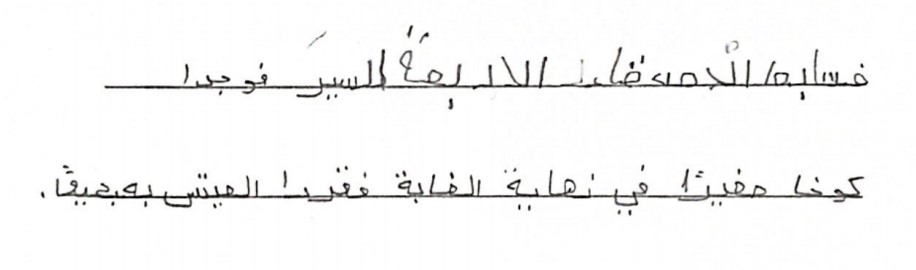 فتابع الأصدقاء الأربعة السير فوجدوا
كوخا صغيرًا في نهاية الغابة فقررا العيش به جميعًا.